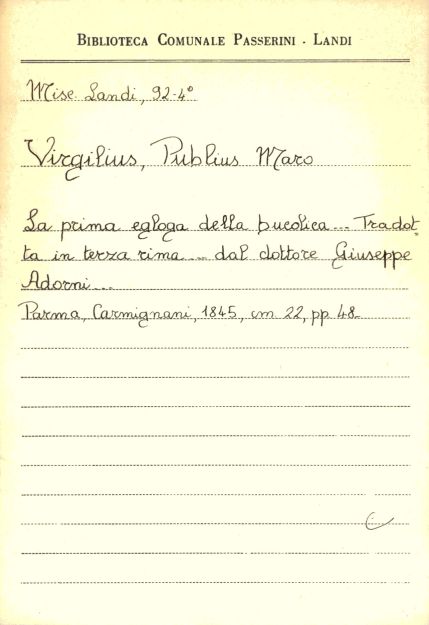 BIBLIOTECA COMUNALE PASSERINI - LANDI
Misc. Landi, 92-4°
Virgilius, Publius Maro
La prima egloga della bucolica... Tradot-
ta in terza rima... dal dottore Giuseppe
Adorni...
Parma, Carmignani, 1845, cm 22, pp. 48